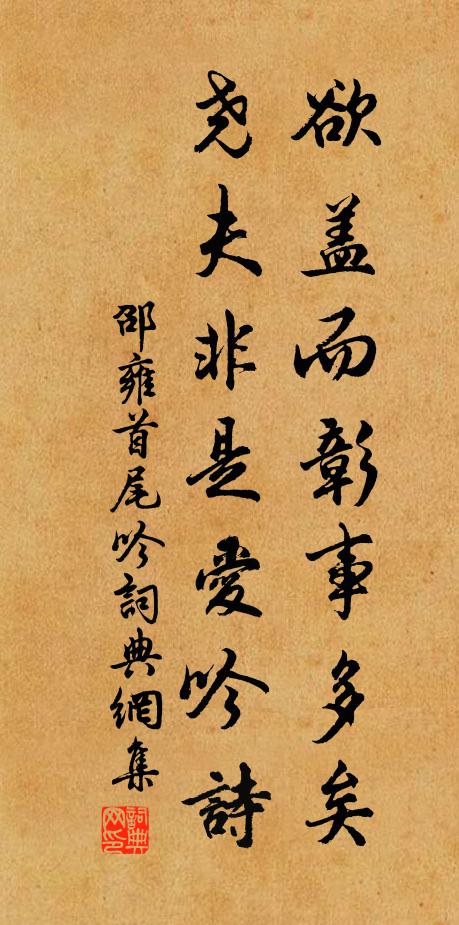 欲盖而彰事多矣
尧夫非是愛吟詩
邵雍首尾吟詞典網集
詞典网印